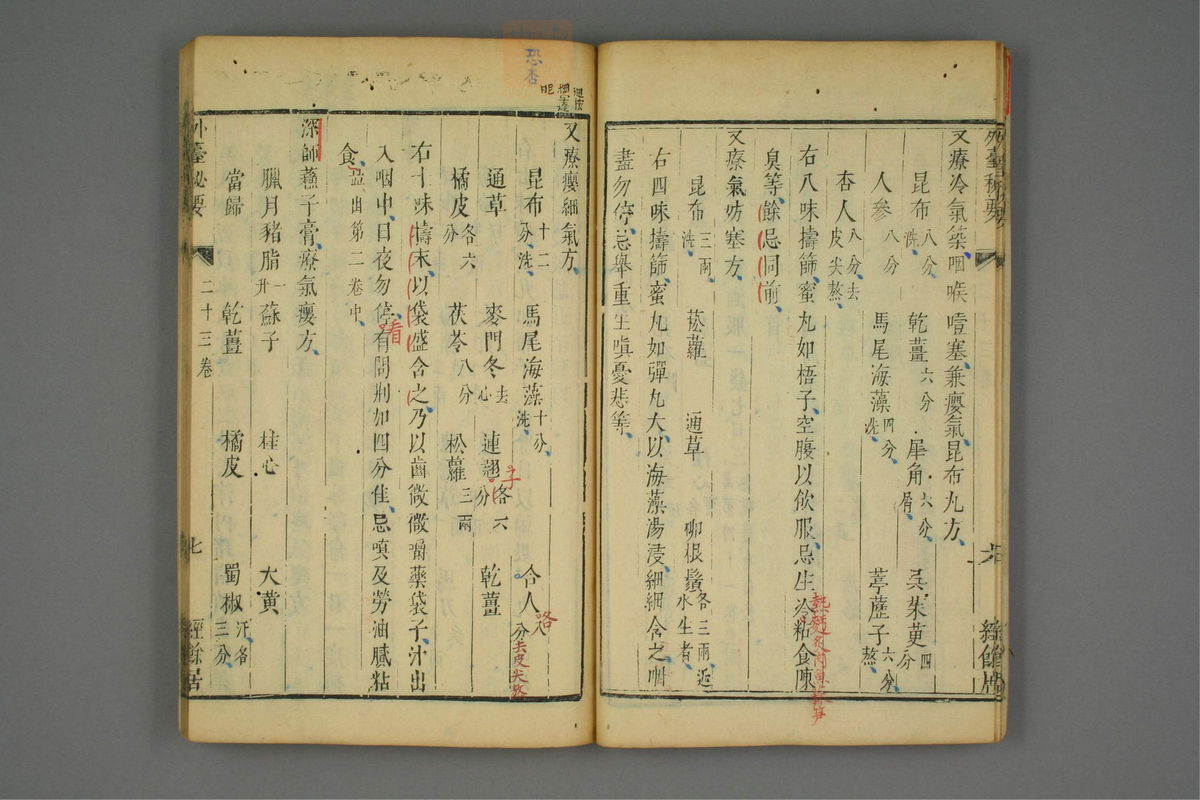 外臺秘要
又療冷氣築咽喉噎塞兼癭氣昆布丸方
昆布八分洗 乾薑六分 犀角六分屑 吳茱萸四分
人參八分 馬尾海藻四分洗 葶藶子六分熬
杏人八分去皮尖熬
右八味擣篩蜜丸如梧子空腹以飲服忌生冷粘食陳
熱麵炙肉
臭等餘忌同前
又療氣妨塞方
昆布三兩洗 菘蘿 通草 柳根鬚各三兩近水生者
右四味擣篩蜜丸如彈丸大以海藻湯浸細細含之咽
盡勿停忌舉重生嗔憂悲等
經餘居
恐杏
又療癭細氣方
昆布十二分洗 馬尾海藻十分洗 杏人
分去皮尖熬
通草 麥門冬去心 連翹各六分 乾薑
子
橘皮各六分 茯苓八分 松蘿三兩
右十味擣末以袋盛含之乃以齒微微嚼藥袋子汁出
入咽中日夜勿停有問荆加四分佳忌嗔及勞油膩粘
看
食並出第二卷中
深師蘇子膏療氣癭方
臘月豬脂一升 蘇子 桂心 大黃
當歸 乾薑 橘皮 蜀椒汗各三分
外臺秘要 二十三卷 七 經餘居